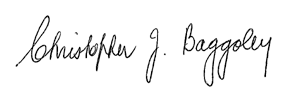 Christopher J. Baggoley